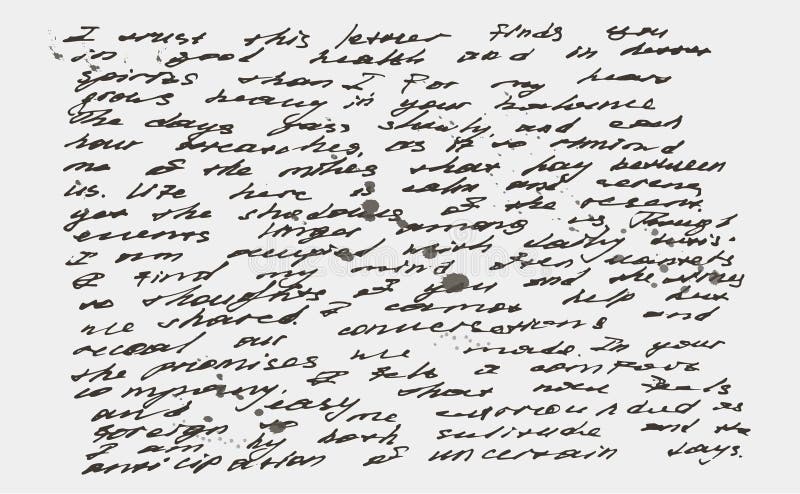 I trust this letter finds you
in good health and in better
spirits than I For my heart
grows heavy in your
The days pass slowly, and each
hour stretches, as if to remind
me of the miles that lay between
us. Life here is calm and serene,
yet the shadows of the recent
events linger among us Though
I am occupied with daily
I find my mind often wanders
to thoughts of you and the times
we shared. I cannot help but
recall our conversations and
the promises we made. In your
company, I felt a comfort
and easy that now feels
foreign to me surrounded as
I am by both solitude and the
anticipation of uncertain days.
dreamstime